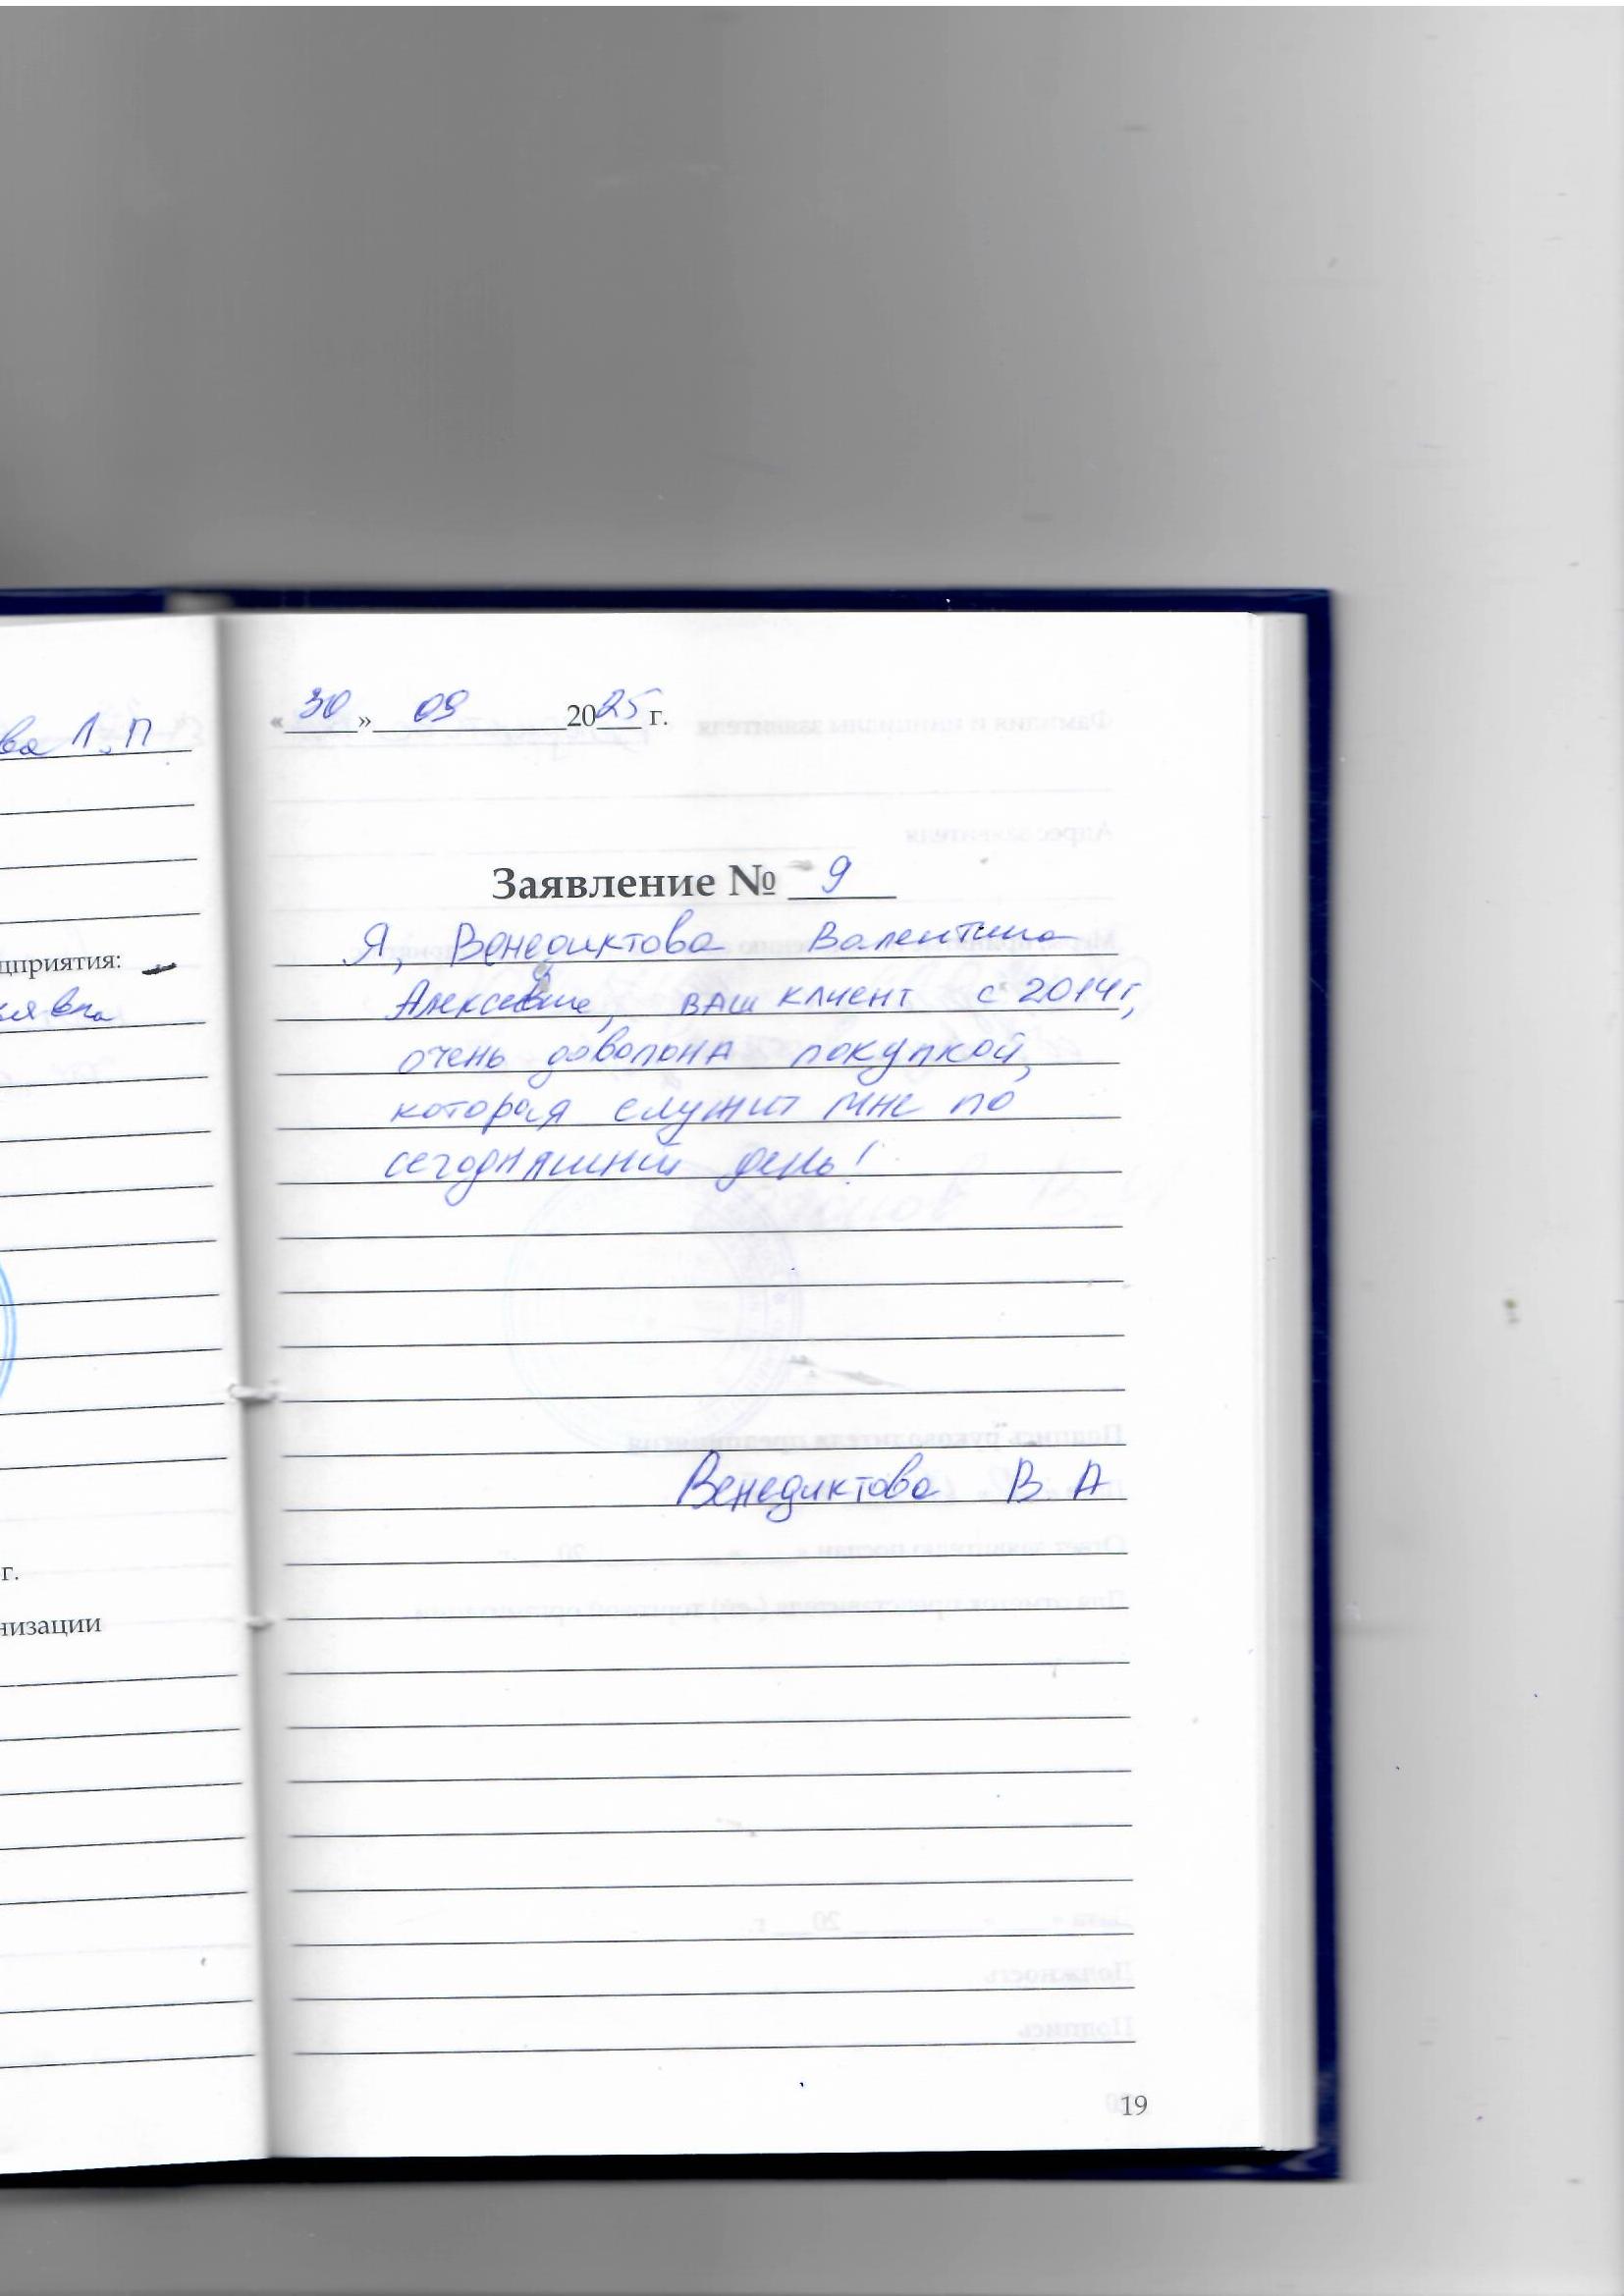 ва Л.П
дприятия:
г.
низации
«30» 09 2025 г.
Заявление № 9
Я, Венедиктова Валентина
Алексевна, ваш клиент с 2014г,
очень доволона покупкой,
которая служит мне по
сегодняшний день!
Венедиктова В А
19